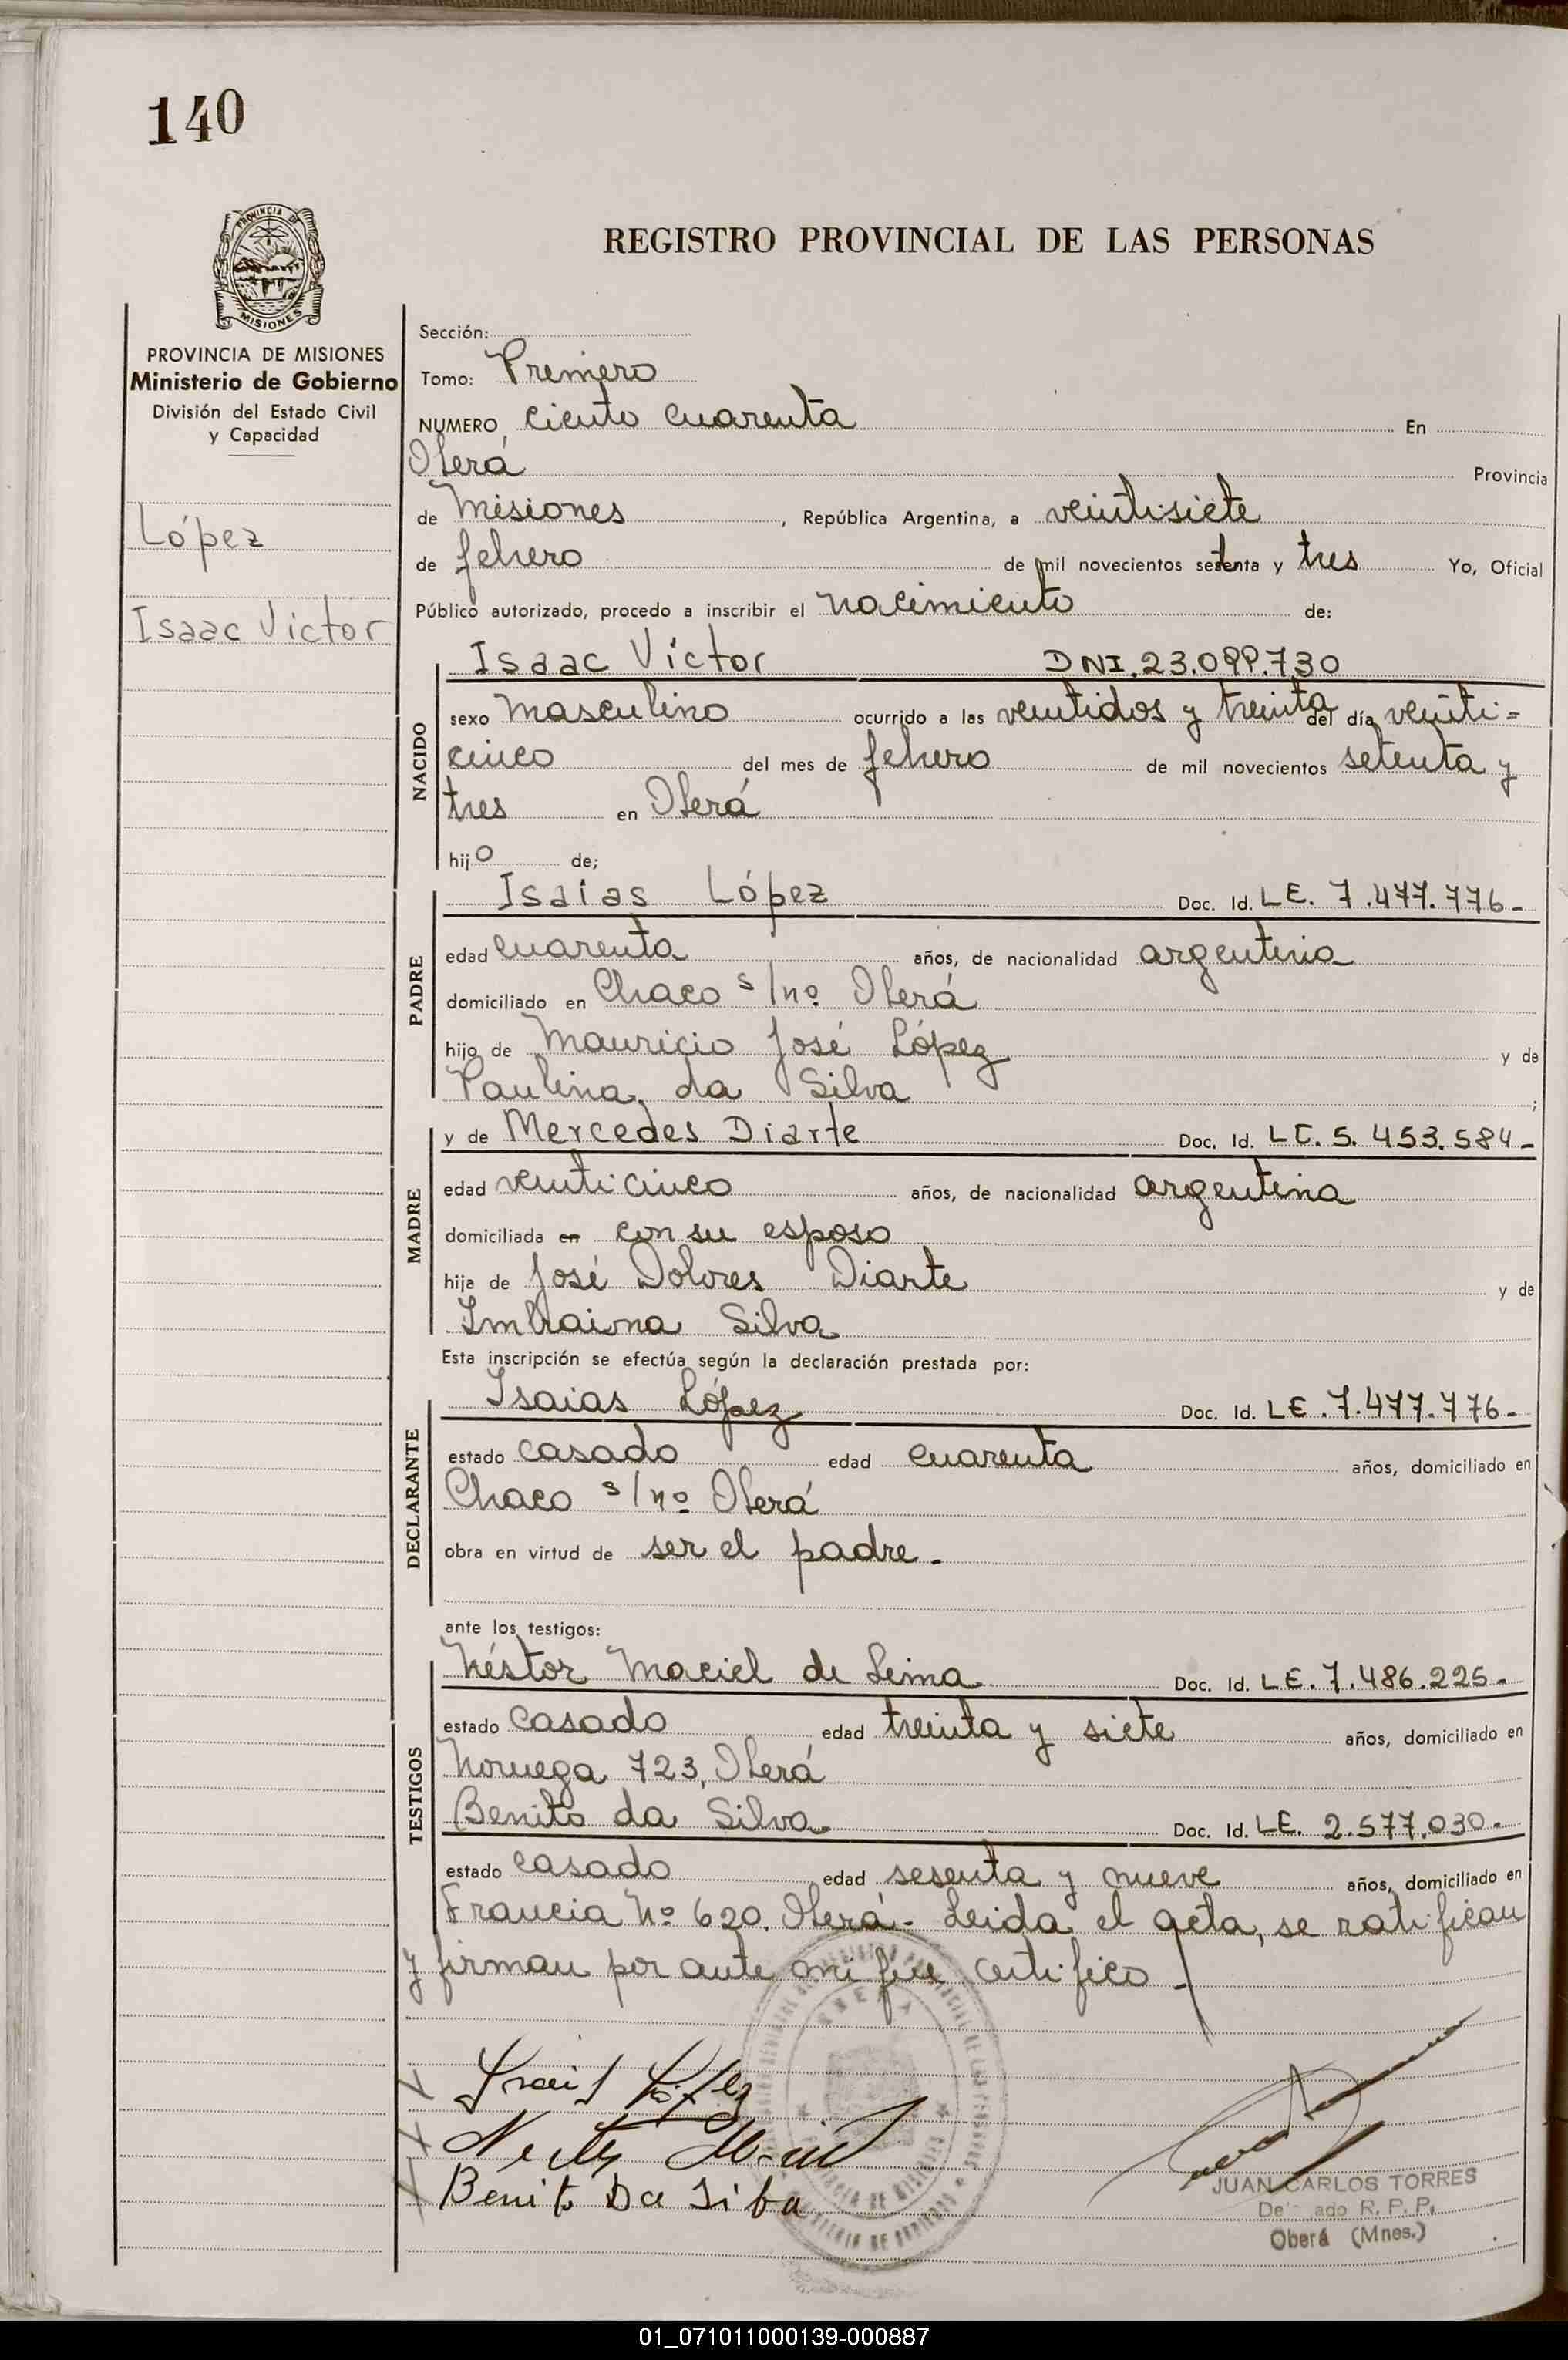 140
PROVINCIA DE
MISIONES
REGISTRO PROVINCIAL DE LAS PERSONAS
PROVINCIA DE MISIONES
Ministerio de Gobierno
División del Estado Civil
y Capacidad
López
Isaac Victor
Sección:
Tomo: Primero
NUMERO ciento cuarenta En
Oberá Provincia
de Misiones, República Argentina, a veintisiete
de febrero de mil novecientos setenta y tres Yo, Oficial
Público autorizado, procedo a inscribir el nacimiento de:
NACIDO
Isaac Victor DNI.23.099.730
sexo masculino ocurrido a las veintidos y treinta del día veinti=
cinco del mes de febrero de mil novecientos setenta y
tres en Oberá
hijo de;
PADRE
Isaias López Doc. Id. LE. 7.477.776-
edad cuarenta años, de nacionalidad argentina
domiciliado en Chaco s/nº Oberá
hijo de Mauricio José López y de
Paulina da Silva ;
MADRE
y de Mercedes Diarte Doc. Id. LC. 5.453.584-
edad veinticinco años, de nacionalidad argentina
domiciliada en con su esposo
hija de José Dolores Diarte y de
Imbraina Silva
Esta inscripción se efectúa según la declaración prestada por:
DECLARANTE
Isaias López Doc. Id. LE.7.477.776-
estado casado edad cuarenta años, domiciliado en
Chaco s/nº Oberá
obra en virtud de ser el padre.
ante los testigos:
TESTIGOS
Néstor Maciel de Leima Doc. Id. LE.7.486.225-
estado casado edad treinta y siete años, domiciliado en
Noruega 723, Oberá
Benito da Silva Doc. Id. LE. 2.577.030-
estado casado edad sesenta y nueve años, domiciliado en
Francia Nº 620. Oberá- Leida el acta, se ratifican
y firman por ante mi que certifico
Benito Da Silva
JUAN CARLOS TORRES
R. P. P.
Oberá (Mnes.)
01_071011000139-000887